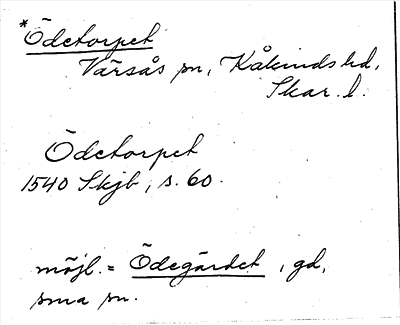 *Ödetorpet
Värsås sn, Kåkinds hd,
Skar. l.
Ödetorpet
1540 Skjb, s. 60.
möjl. = Ödegärdet, gd,
sma sn.